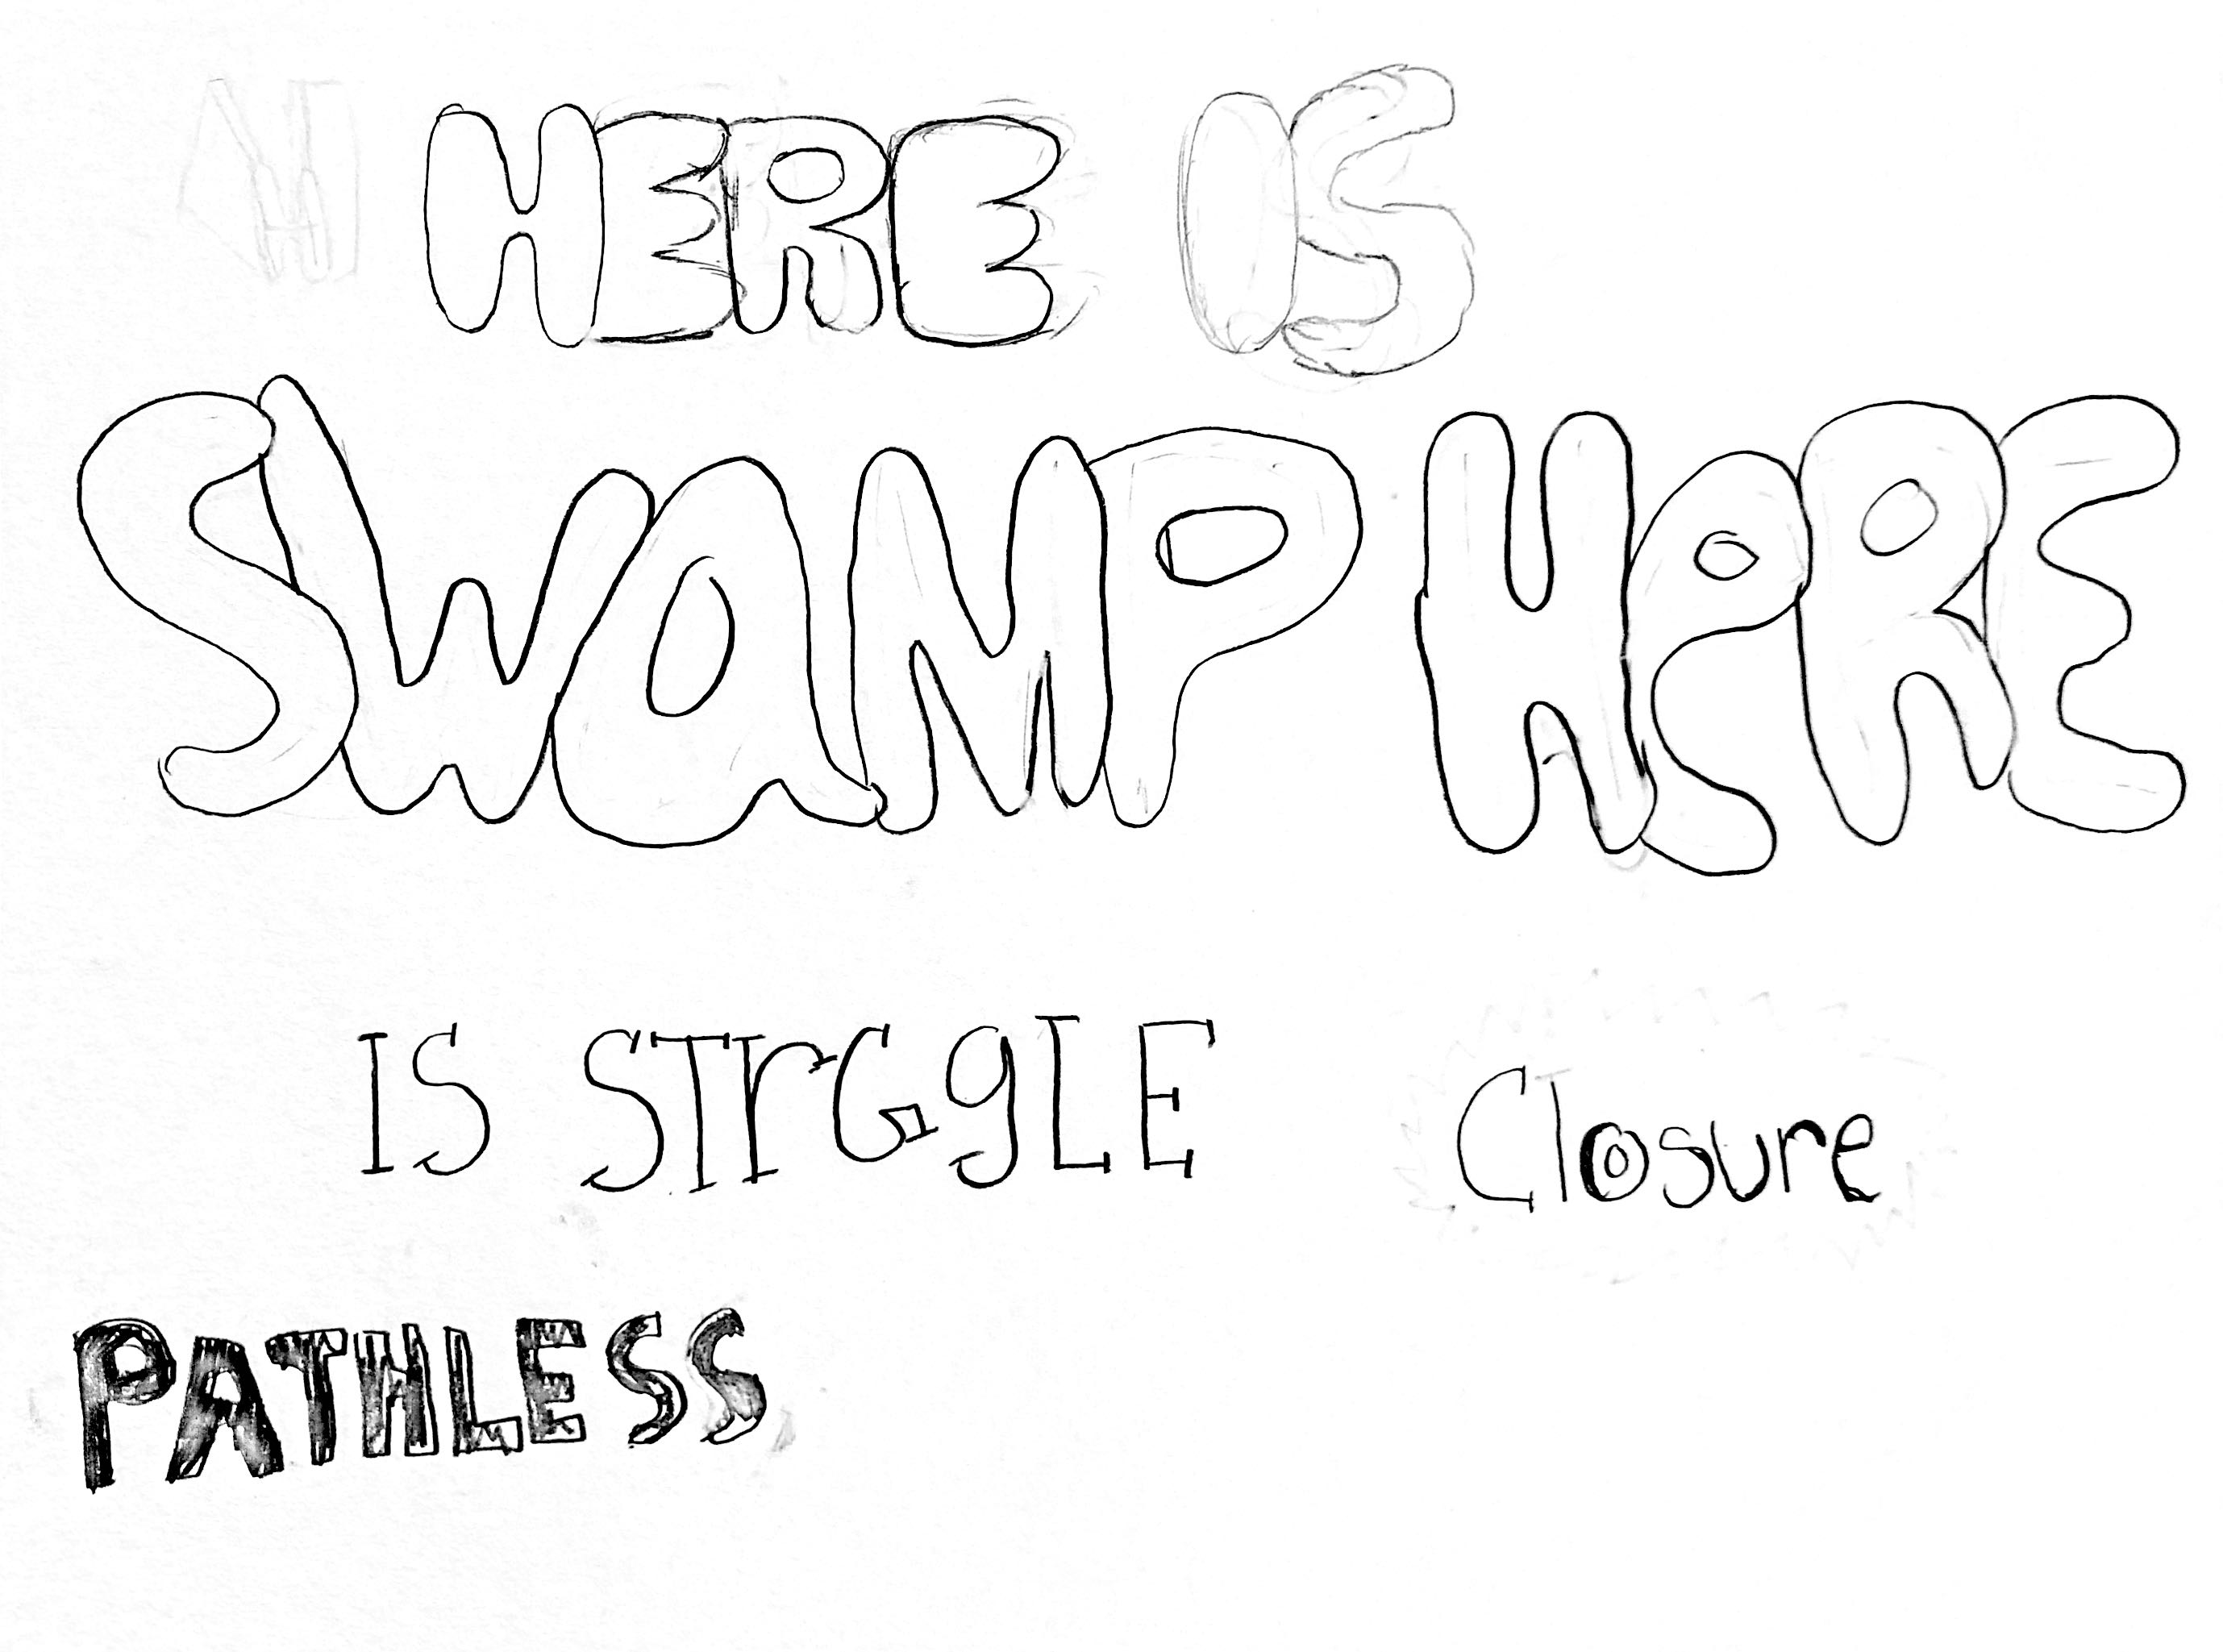 HERE IS
SWaMP HeRE
IS STrGgLE Closure
PATHLESS